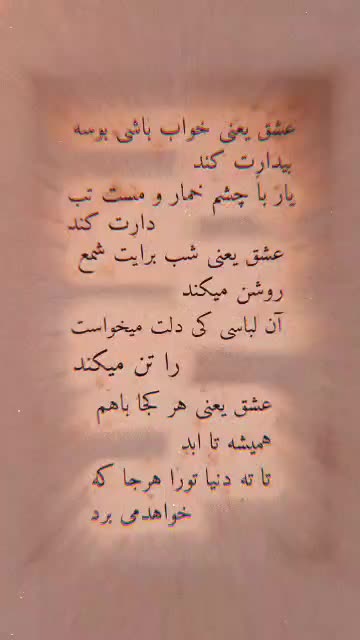 عشق یعنی خواب باشی بوسه
بیدارت کند
یار با چشم خمار و مست تب
دارت کند
عشق یعنی شب برایت شمع
روشن میکند
آن لباسی کی دلت میخواست
را تن میکند
عشق یعنی هر کجا باهم
همیشه تا ابد
تا ته دنیا تورا هرجا که
خواهدمی برد